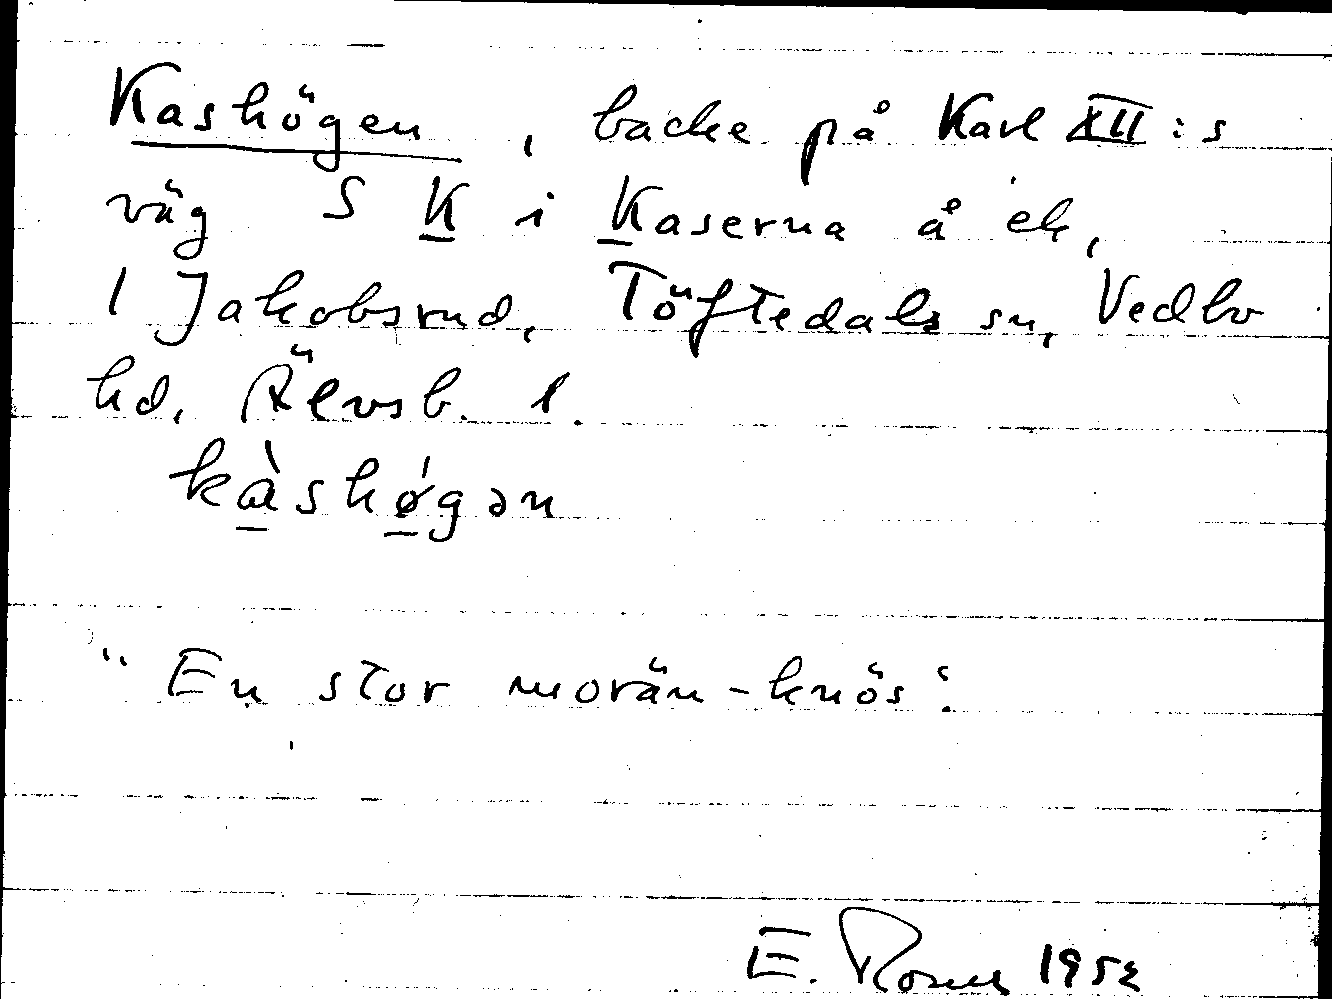 Kashögen, backe på Karl XII:s
väg S K i Kaserna å ek,
1 Jakobsrud, Töftedals sn, Vedbo
hd, Älvsb. l.
kàshǿgən
"En stor morän-knös".
E. 1952